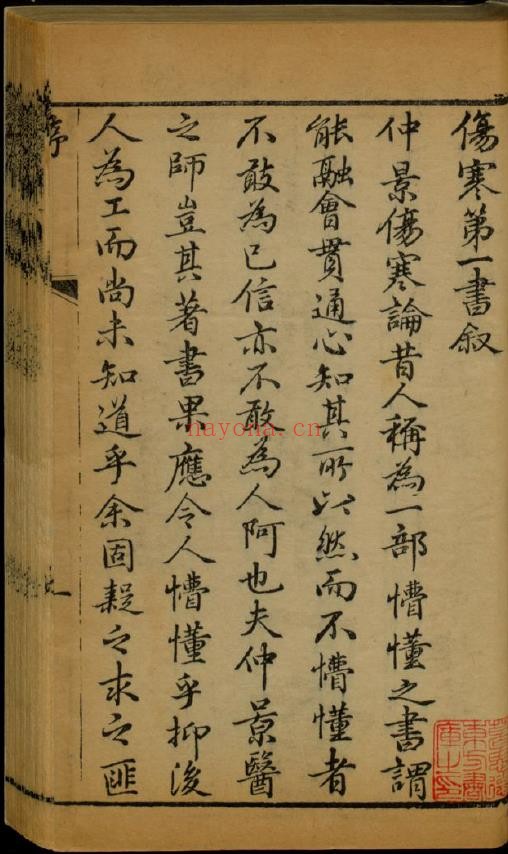 傷寒第一書叙
仲景傷寒論昔人稱為一部懵懂之書謂
能融會貫通心知其所以然而不懵懂者
不敢為已信亦不敢為人阿也夫仲景醫
之師豈其著書果應令人懵懂乎抑後
人為工而尚未知道乎余固疑之求之匪
序
nayona.cn